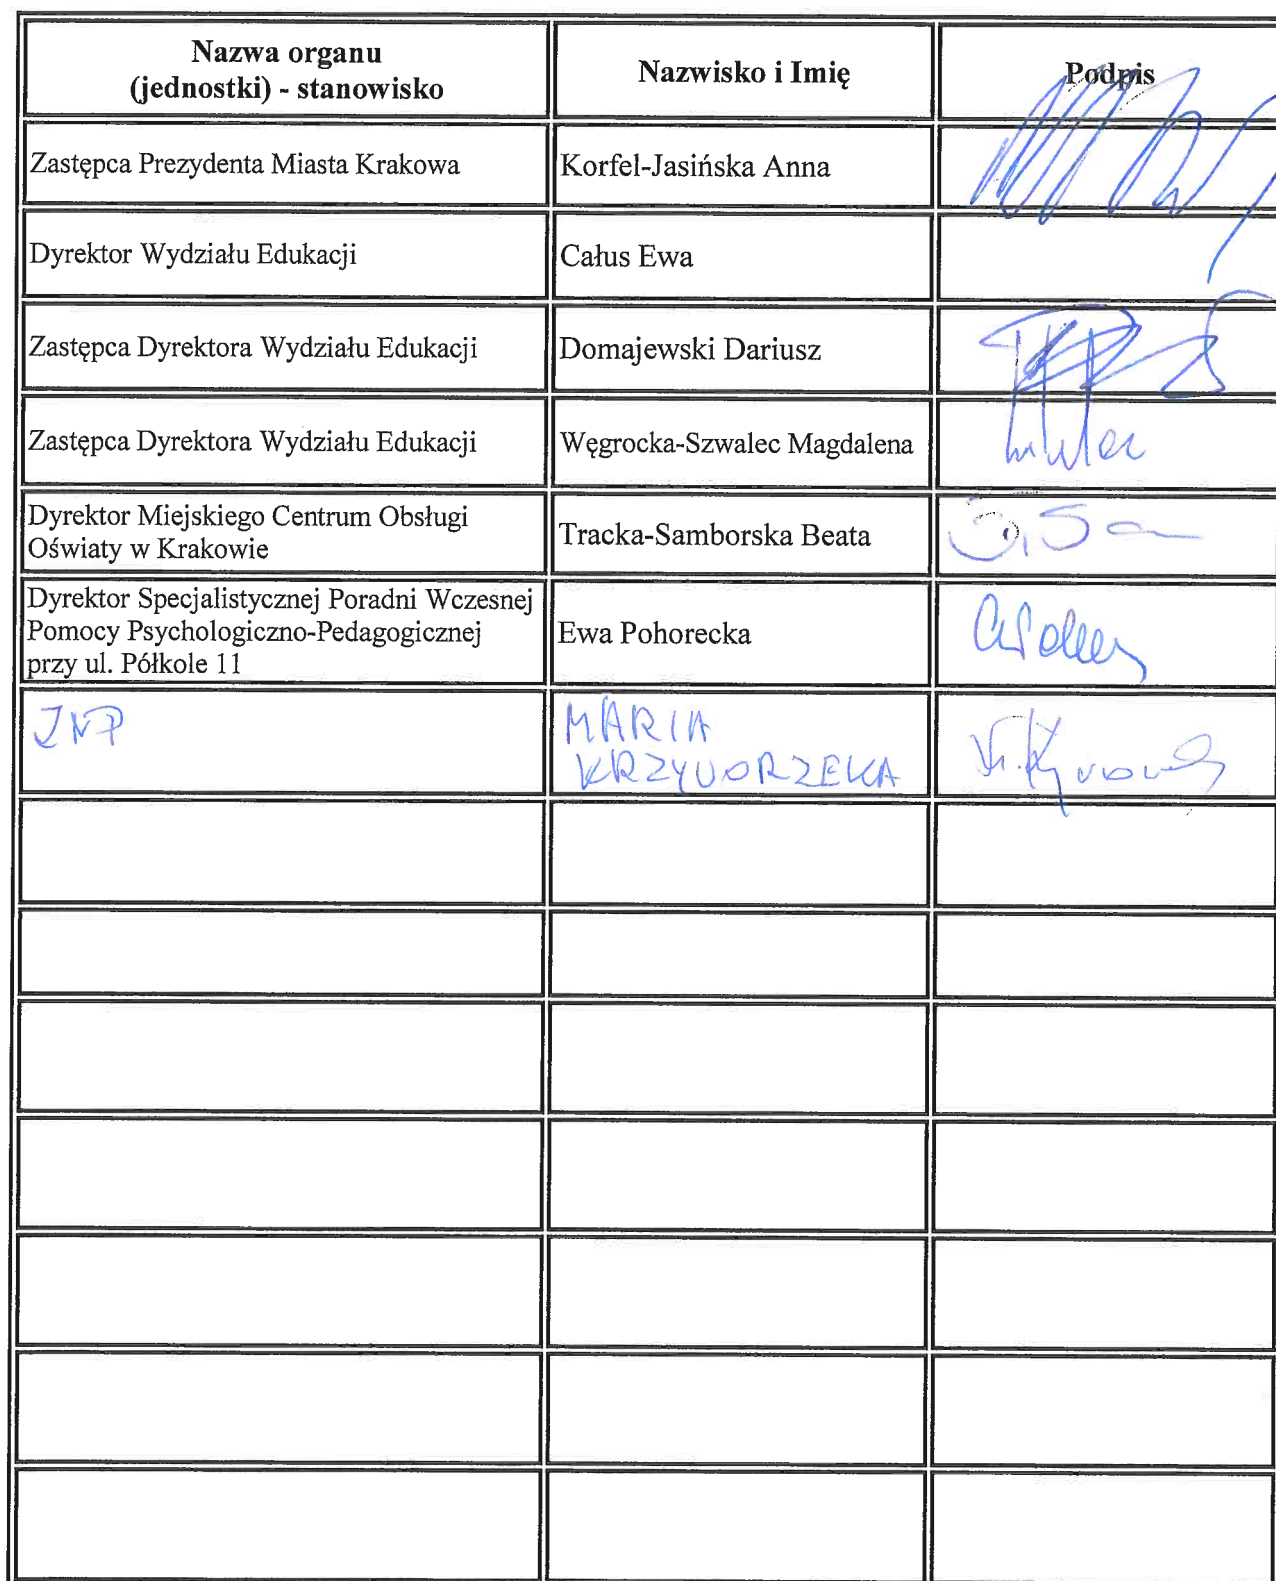 Nazwa organu
(jednostki) - stanowisko
Nazwisko i Imię
Podpis
Zastępca Prezydenta Miasta Krakowa
Korfel-Jasińska Anna
Dyrektor Wydziału Edukacji
Całus Ewa
Zastępca Dyrektora Wydziału Edukacji
Domajewski Dariusz
Zastępca Dyrektora Wydziału Edukacji
Węgrocka-Szwalec Magdalena
Dyrektor Miejskiego Centrum Obsługi
Oświaty w Krakowie
Tracka-Samborska Beata
Dyrektor Specjalistycznej Poradni Wczesnej
Pomocy Psychologiczno-Pedagogicznej
przy ul. Półkole 11
Ewa Pohorecka
ZNP
MARIA
KRZYWORZEKA